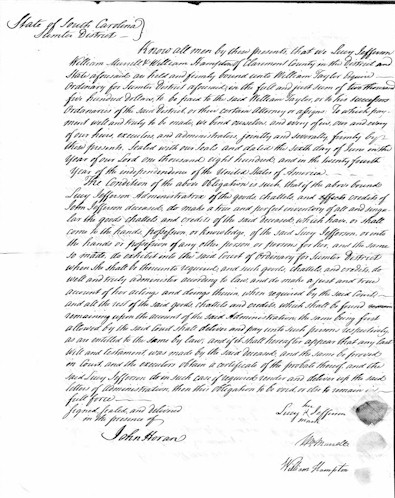 State of South Carolina }
Sumter District }
Know all men by these presents, that we Lucy Jefferson
William Murrell & William Hampton of Claremont County in the District and
State aforesaid are held and firmly bound unto William Taylor Esquire
Ordinary for Sumter District aforesaid, in the full and just sum of two thousand
five hundred dollars, to be paid to the said William Taylor, or to his successors
Ordinaries of the said District, or their certain Attorney or assigns. To which pay-
ment well and truly to be made, we bind ourselves and every of us, our and every
of our heirs, executors, and administrators, jointly and severally, firmly by
these presents. Sealed with our Seals and dated the sixth day of June in the
Year of our Lord one thousand eight hundred, and in the twenty fourth
Year of the independence of the United States of America.
The Condition of the above Obligation is such, that if the above bound
Lucy Jefferson Administratrix of the goods, chattels, and effects credits of
John Jefferson deceased, do make a true and perfect inventory of all and singu-
lar the goods chattels and credits of the said deceased, which have, or shall
come to the hands, possession or knowledge, of the said Lucy Jefferson, or into
the hands or possession of any other person or persons for her, and the same
so made, do exhibit into the said Court of Ordinary for Sumter District
when She shall be thereunto required, and such goods, chattels, and credits, do
well and truly administer according to law, and do make a just and true
account of her acting and doings therein when required by the said Court
and all the rest of the said goods, chattels and credits which shall be found
remaining upon the account of the said Administration, the same being first
allowed by the said Court shall deliver and pay unto such persons respectively
as are entitled to the same by law, and if it shall hereafter appear that any last
Will and testament was made by the said deceased, and the same be proved
in Court, and the executors obtain a certificate of the probate thereof, and the
said Lucy Jefferson do in such case if required render and deliver up the said
letters of Administration, then this obligation to be void, or else to remain in
full force
Signed, Sealed, and delivered
in the presence of
John Horan
her
Lucy X Jefferson
mark
Wm Murrell
William Hampton